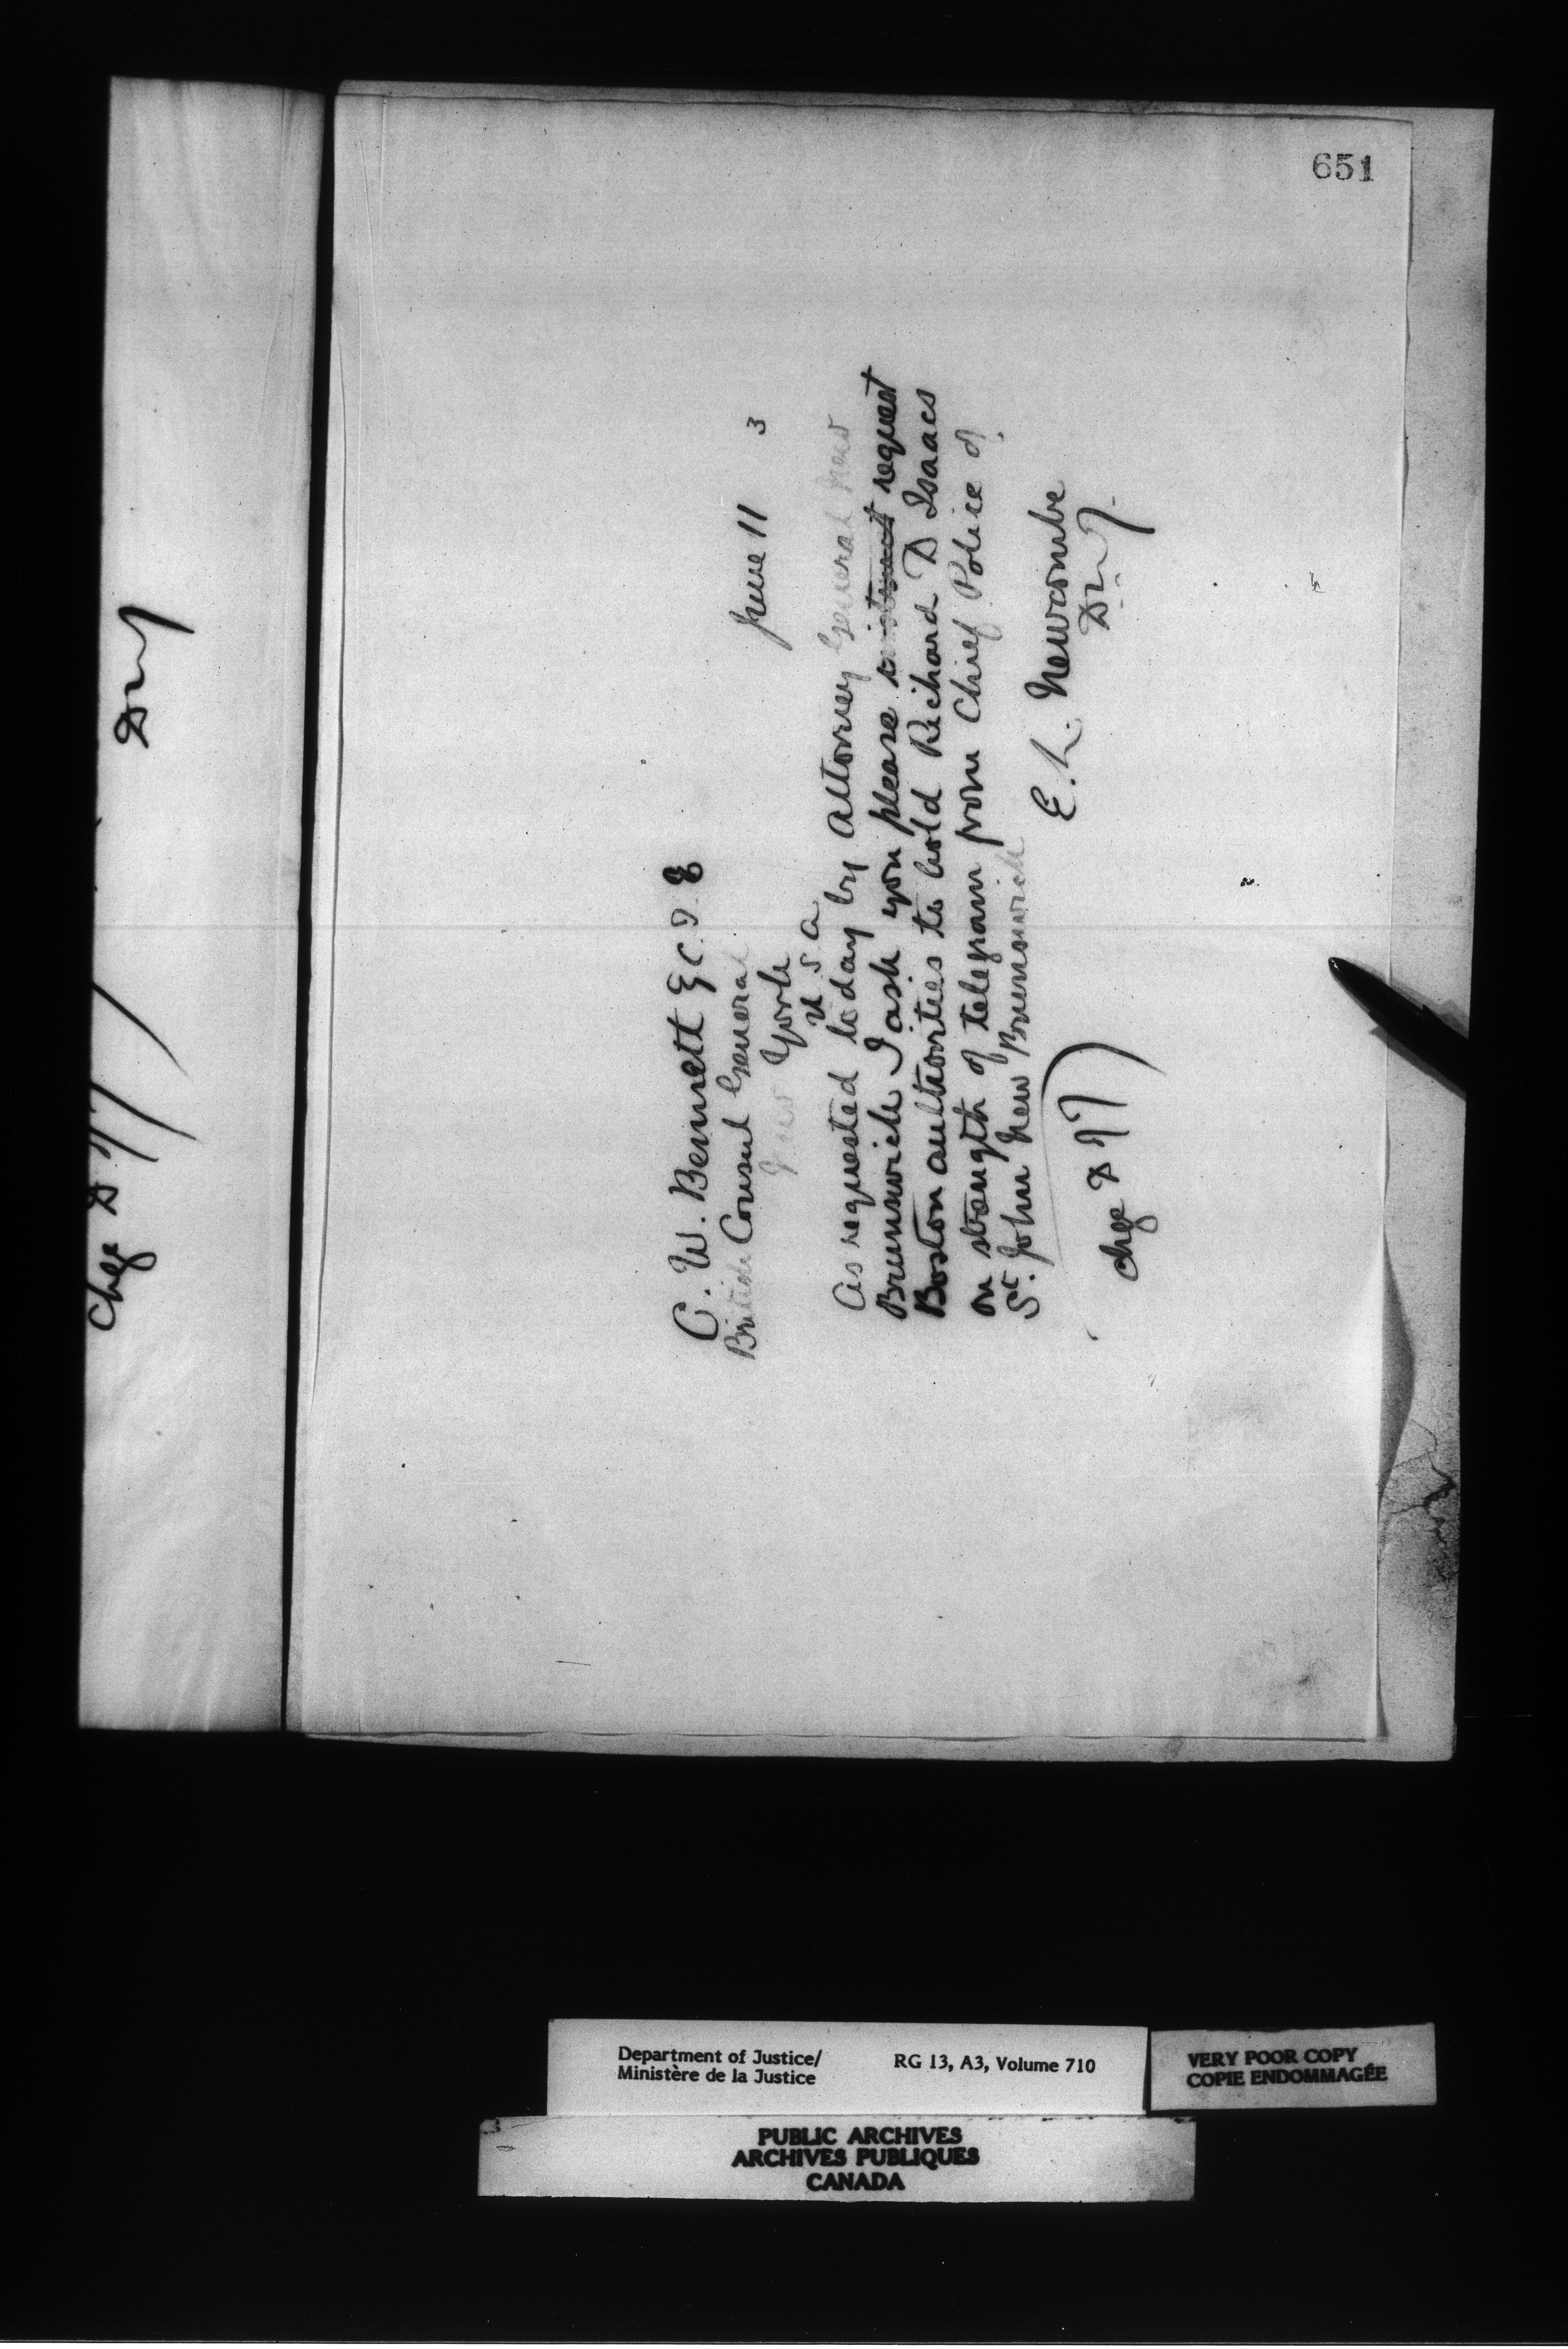 651
Chge D of J
June 11 3
C. W. Bennett
British Consul General
New York
U S A
As requested to day by Attorney General New
Brunswick I ask you please instruct request
Boston authorities to hold Richard D Isaacs
on strength of telegram from Chief Police of
St. John New Brunswick
E. L. Newcombe
D M J.
Chge D of J
Department of Justice/
Ministère de la Justice
RG 13, A3, Volume 710
VERY POOR COPY
COPIE ENDOMMAGÉE
PUBLIC ARCHIVES
ARCHIVES PUBLIQUES
CANADA